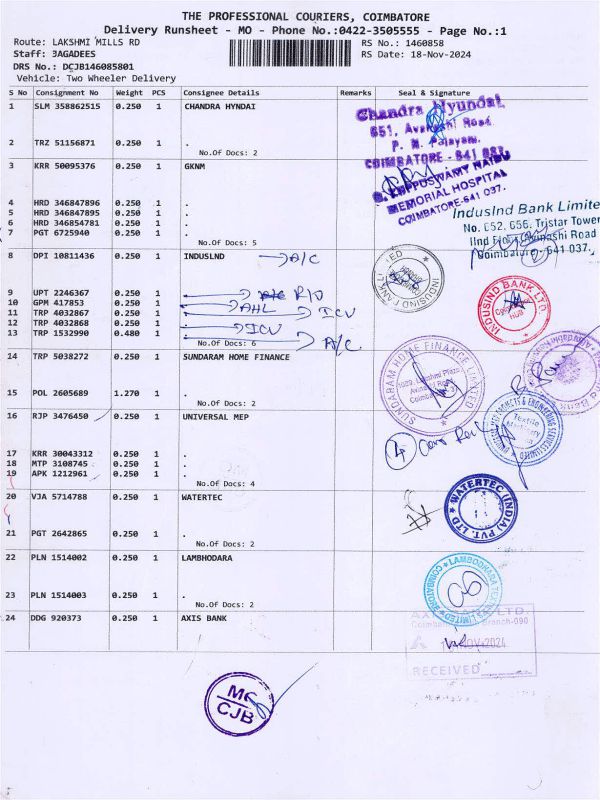 THE PROFESSIONAL COURIERS, COIMBATORE
Delivery Runsheet - MO - Phone No.:0422-3505555 - Page No.:1
Route: LAKSHMI MILLS RD RS No.: 1460858
Staff: JAGADEES RS Date: 18-Nov-2024
DRS No.: DCJB146085801
Vehicle: Two Wheeler Delivery
S No Consignment No Weight PCS Consignee Details Remarks Seal & Signature
1 SLM 358862515 0.250 1 CHANDRA HYNDAI
Chandra Hyundai,
651, Avanashi Road.
P. N. Palayam,
COIMBATORE - 641
2 TRZ 51156871 0.250 1 .
No.Of Docs: 2
3 KRR 50095376 0.250 1 GKNM
G. KUPPUSWAMY NAIDU
MEMORIAL HOSPITAL
COIMBATORE-641 037.
4 HRD 346847896 0.250 1 .
5 HRD 346847895 0.250 1 .
6 HRD 346854781 0.250 1 .
7 PGT 6725940 0.250 1 .
No.Of Docs: 5
IndusInd Bank Limite
No. 652, 656, Tristar Tower
IInd Floor, Avinashi Road
Coimbatore-641 037.
8 DPI 10811436 0.250 1 INDUSLND A/C
INDUSIND BANK
9 UPT 2246367 0.250 1 .
10 GPM 417853 0.250 1 . AHL
11 TRP 4032867 0.250 1 . ICU
12 TRP 4032868 0.250 1 . ICU
13 TRP 1532990 0.480 1 . A/C
No.Of Docs: 6
INDUSIND BANK LTD
HUB
14 TRP 5038272 0.250 1 SUNDARAM HOME FINANCE
SUNDARAM HOME FINANCE LIMITED
Lakshmi Plaza
15 POL 2605689 1.270 1 .
No.Of Docs: 2
16 RJP 3476450 0.250 1 UNIVERSAL MEP
PROJECTS & ENGINEERING SERVICES LIMITED
Textile
4
17 KRR 30043312 0.250 1 .
18 MTP 3108745 0.250 1 .
19 APK 1212961 0.250 1 .
No.Of Docs: 4
20 VJA 5714788 0.250 1 WATERTEC
WATERTEC (INDIA) PVT. LTD
21 PGT 2642865 0.250 1 .
No.Of Docs: 2
22 PLN 1514002 0.250 1 LAMBHODARA
LIMITED COIMBATORE
23 PLN 1514003 0.250 1 .
No.Of Docs: 2
24 DDG 920373 0.250 1 AXIS BANK
LTD.
Branch-090
NOV 2024
RECEIVED
CJB